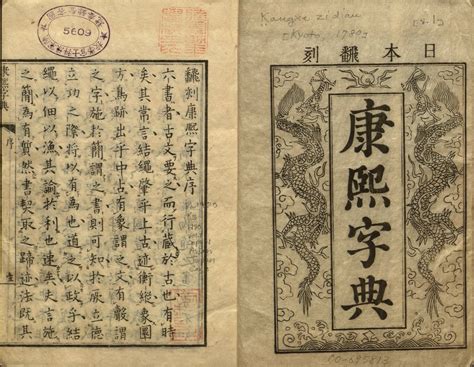 日本翻刻
康熙字典
翻刻康熙字典序
六書者古文要之而行藏於古也有時
矣其常言結繩肇乎上古迹衡縱象圍
方鳥跡出乎中古有像謂之文有
謂
之字施於簡謂之書則可知於厥立德
立功之際將以有為也道之以政乎結
繩以佃以漁其諭於利也速矣史言施
之簡為有
然書契取之
迹法既其
序
5609